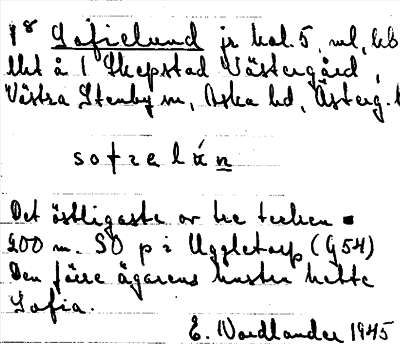 18 Sofielund jr kol. 5, ml, bb
lht å 1 Skepstad Västergård,
Västra Stenby sn, Aska hd, Österg. l
sofɪelún
Det östligaste av tre tecken
200 m. SO p i Uggletorp (G54)
Den förre ägarens hustru hette
Sofia.
E. Nordlander 1945